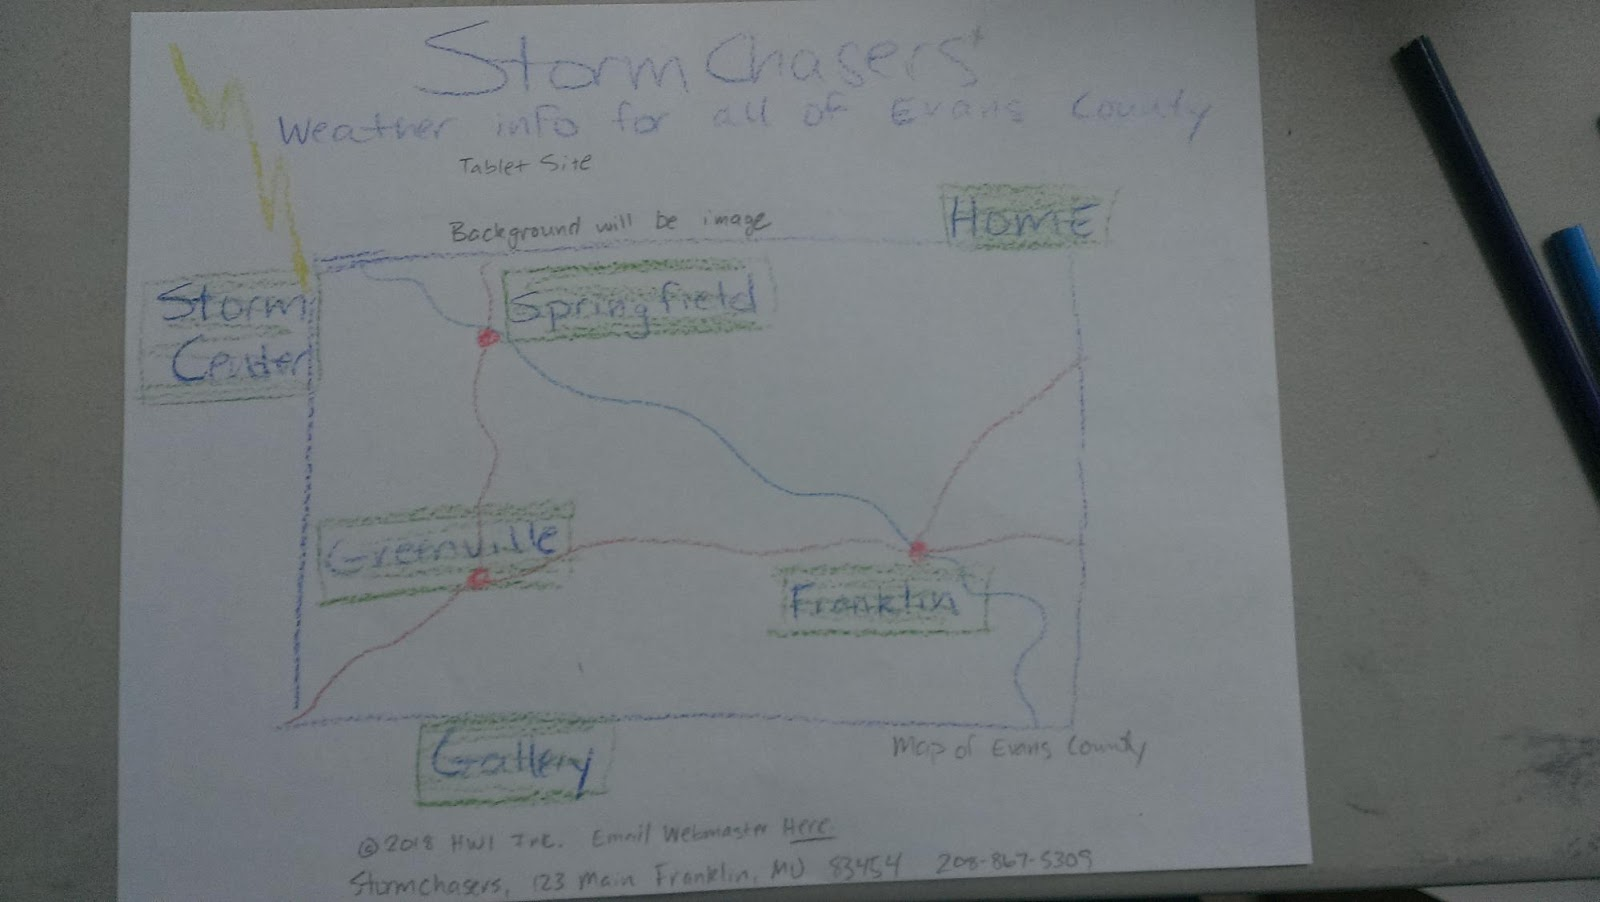 Storm Chasers
Weather info for all of Evans County
Tablet Site
Background will be image
Home
Storm
Center
Springfield
Greenville
Franklin
Gallery
Map of Evans County
© 2018 HWI Inc. Email Webmaster Here.
Stormchasers, 123 Main Franklin, MU 83454 208-867-5309